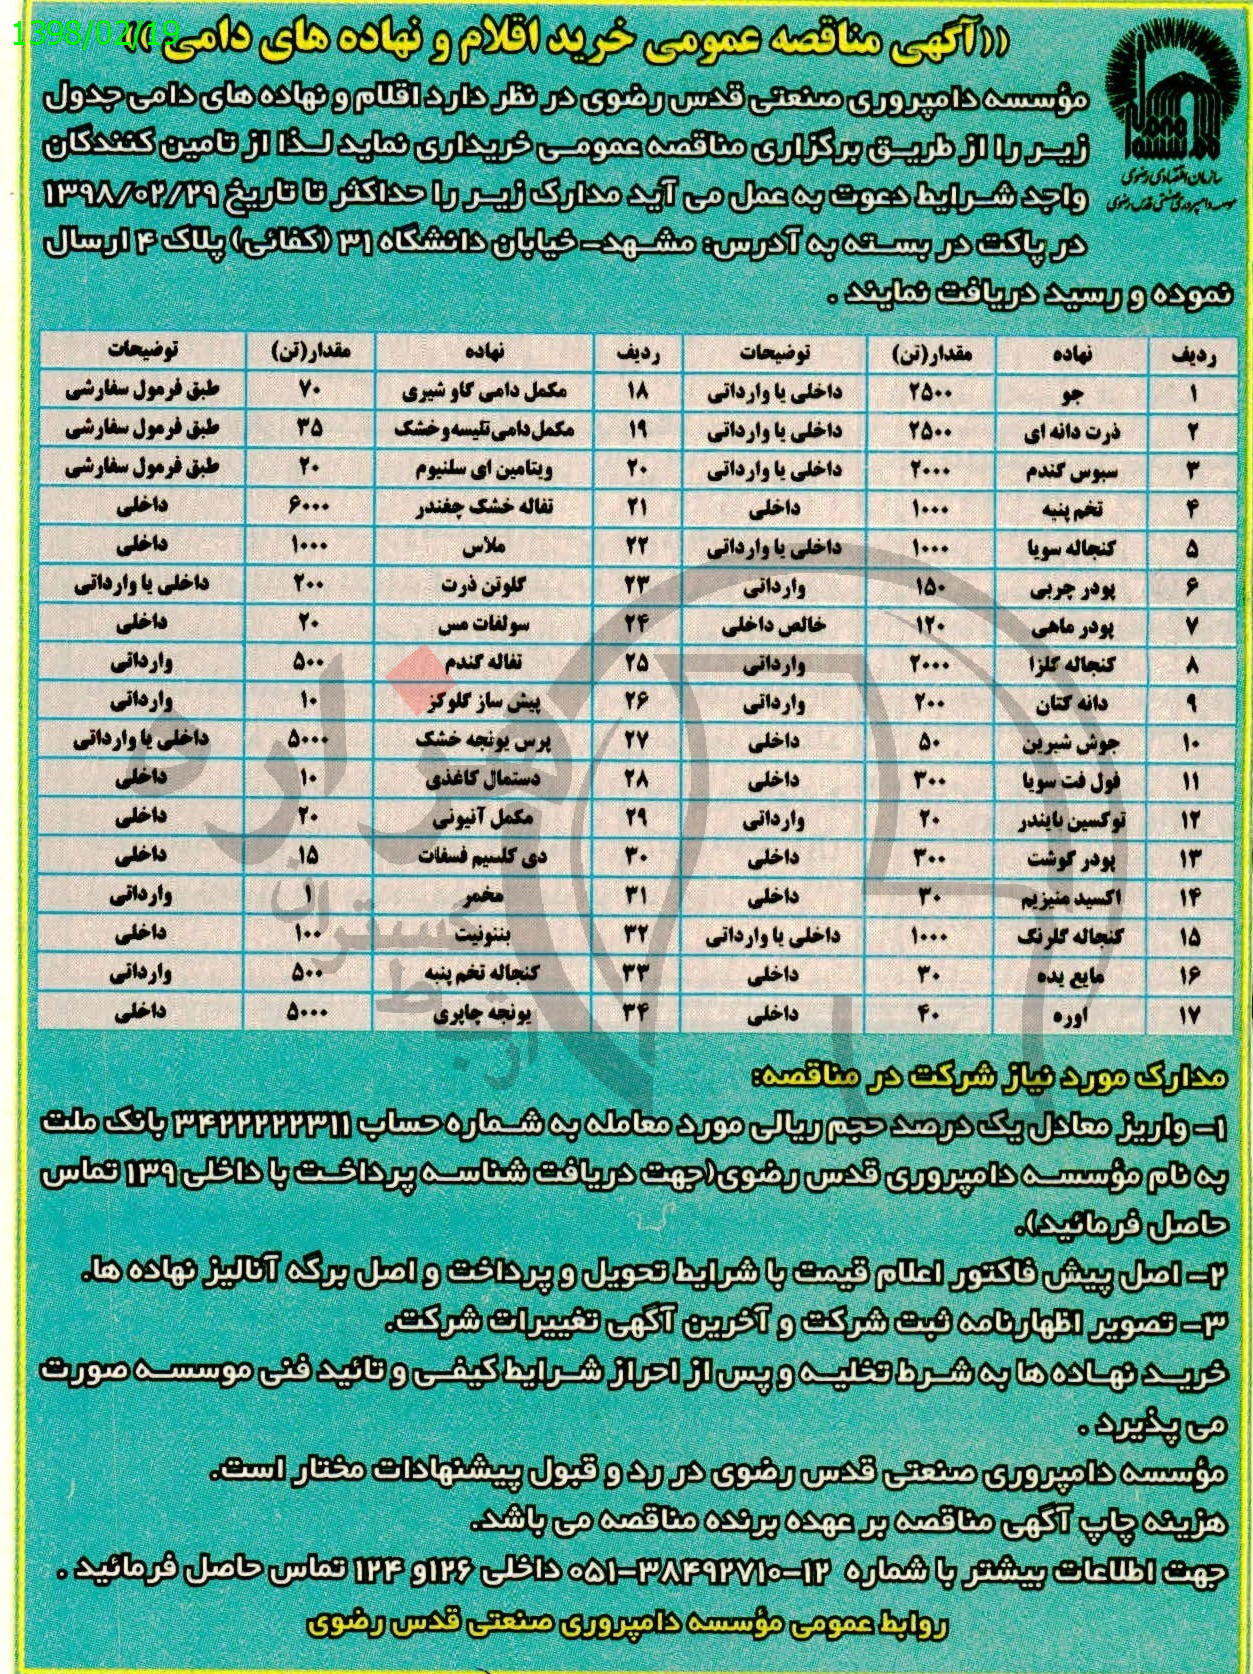 1398/02/19
((آگهی مناقصه عمومی خرید اقلام و نهاده های دامی))
سازمان اقتصادی رضوی
موسسه دامپروری صنعتی قدس رضوی
مؤسسه دامپروری صنعتی قدس رضوی در نظر دارد اقلام و نهاده های دامی جدول
زیر را از طریق برگزاری مناقصه عمومی خریداری نماید لذا از تامین کنندگان
واجد شرایط دعوت به عمل می آید مدارک زیر را حداکثر تا تاریخ ۱۳۹۸/۰۲/۲۹
در پاکت در بسته به آدرس: مشهد- خیابان دانشگاه ۳۱ (کفائی) پلاک ۴ ارسال
نموده و رسید دریافت نمایند .
ردیف نهاده مقدار(تن) توضیحات ردیف نهاده مقدار(تن) توضیحات
۱ جو ۲۵۰۰ داخلی یا وارداتی ۱۸ مکمل دامی گاو شیری ۷۰ طبق فرمول سفارشی
۲ ذرت دانه ای ۲۵۰۰ داخلی یا وارداتی ۱۹ مکمل دامی تلیسه و خشک ۳۵ طبق فرمول سفارشی
۳ سبوس گندم ۲۰۰۰ داخلی یا وارداتی ۲۰ ویتامین ای سلنیوم ۲۰ طبق فرمول سفارشی
۴ تخم پنبه ۱۰۰۰ داخلی ۲۱ تفاله خشک چغندر ۶۰۰۰ داخلی
۵ کنجاله سویا ۱۰۰۰ داخلی یا وارداتی ۲۲ ملاس ۱۰۰۰ داخلی
۶ پودر چربی ۱۵۰ وارداتی ۲۳ گلوتن ذرت ۲۰۰ داخلی یا وارداتی
۷ پودر ماهی ۱۲۰ خالص داخلی ۲۴ سولفات مس ۲۰ داخلی
۸ کنجاله کلزا ۲۰۰۰ وارداتی ۲۵ تفاله گندم ۵۰۰ وارداتی
۹ دانه کتان ۲۰۰ وارداتی ۲۶ پیش ساز گلوکز ۱۰ وارداتی
۱۰ جوش شیرین ۵۰ داخلی ۲۷ پرس یونجه خشک ۵۰۰۰ داخلی یا وارداتی
۱۱ فول فت سویا ۳۰۰ داخلی ۲۸ دستمال کاغذی ۱۰ داخلی
۱۲ توکسین بایندر ۲۰ وارداتی ۲۹ مکمل آنیونی ۲۰ داخلی
۱۳ پودر گوشت ۳۰۰ داخلی ۳۰ دی کلسیم فسفات ۱۵ داخلی
۱۴ اکسید منیزیم ۳۰ داخلی ۳۱ مخمر ۱ وارداتی
۱۵ کنجاله گلرنگ ۱۰۰۰ داخلی یا وارداتی ۳۲ بنتونیت ۱۰۰ داخلی
۱۶ مایع یده ۳۰ داخلی ۳۳ کنجاله تخم پنبه ۵۰۰ وارداتی
۱۷ اوره ۴۰ داخلی ۳۴ یونجه چاپری ۵۰۰۰ داخلی
مدارک مورد نیاز شرکت در مناقصه:
۱- واریز معادل یک درصد حجم ریالی مورد معامله به شماره حساب ۳۴۲۲۲۲۲۳۱۱ بانک ملت
به نام مؤسسه دامپروری قدس رضوی(جهت دریافت شناسه پرداخت با داخلی ۱۳۹ تماس
حاصل فرمائید).
۲- اصل پیش فاکتور اعلام قیمت با شرایط تحویل و پرداخت و اصل برگه آنالیز نهاده ها.
۳- تصویر اظهارنامه ثبت شرکت و آخرین آگهی تغییرات شرکت.
خرید نهاده ها به شرط تخلیه و پس از احراز شرایط کیفی و تائید فنی موسسه صورت
می پذیرد .
مؤسسه دامپروری صنعتی قدس رضوی در رد و قبول پیشنهادات مختار است.
هزینه چاپ آگهی مناقصه بر عهده برنده مناقصه می باشد.
جهت اطلاعات بیشتر با شماره ۱۲-۰۵۱-۳۸۴۹۲۷۱۰ داخلی ۱۲۶و ۱۲۴ تماس حاصل فرمائید .
روابط عمومی مؤسسه دامپروری صنعتی قدس رضوی